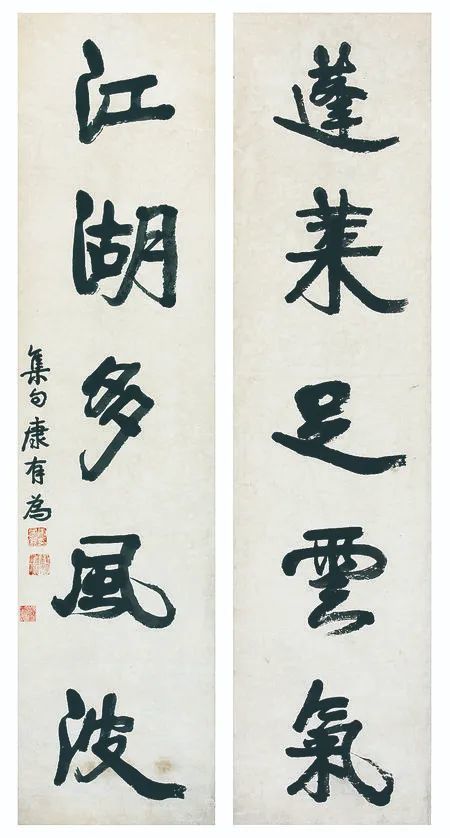 蓬莱足雲氣
江湖多風波
集句康有為